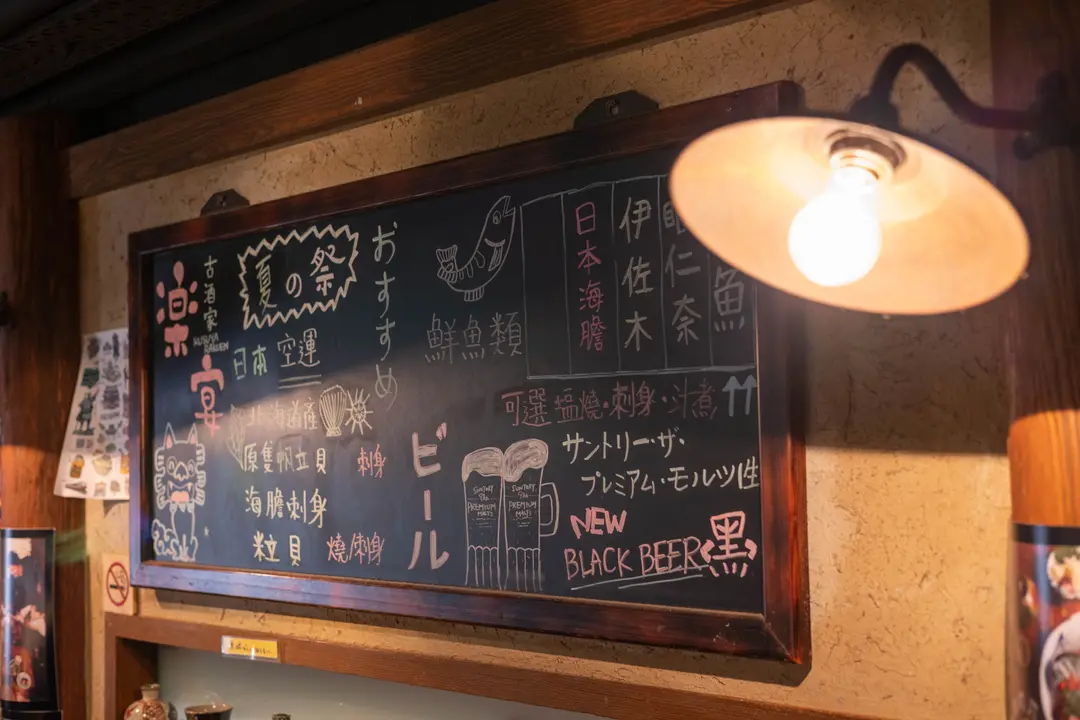 楽宴
古酒家
KUSUYA RAKUEN
夏の祭
おすすめ
日本 空運
北海道産
原隻帆立貝 刺身
海膽刺身
粒貝 燒/刺身
鮮魚類
日本海膽
伊佐木
眼仁奈
魚
可選 塩燒・刺身・汁煮 ↑↑
ビール
SUNTORY The PREMIUM MALT'S
SUNTORY The PREMIUM MALT'S
サントリー・ザ・
プレミアム・モルツ生
NEW
BLACK BEER <黒>